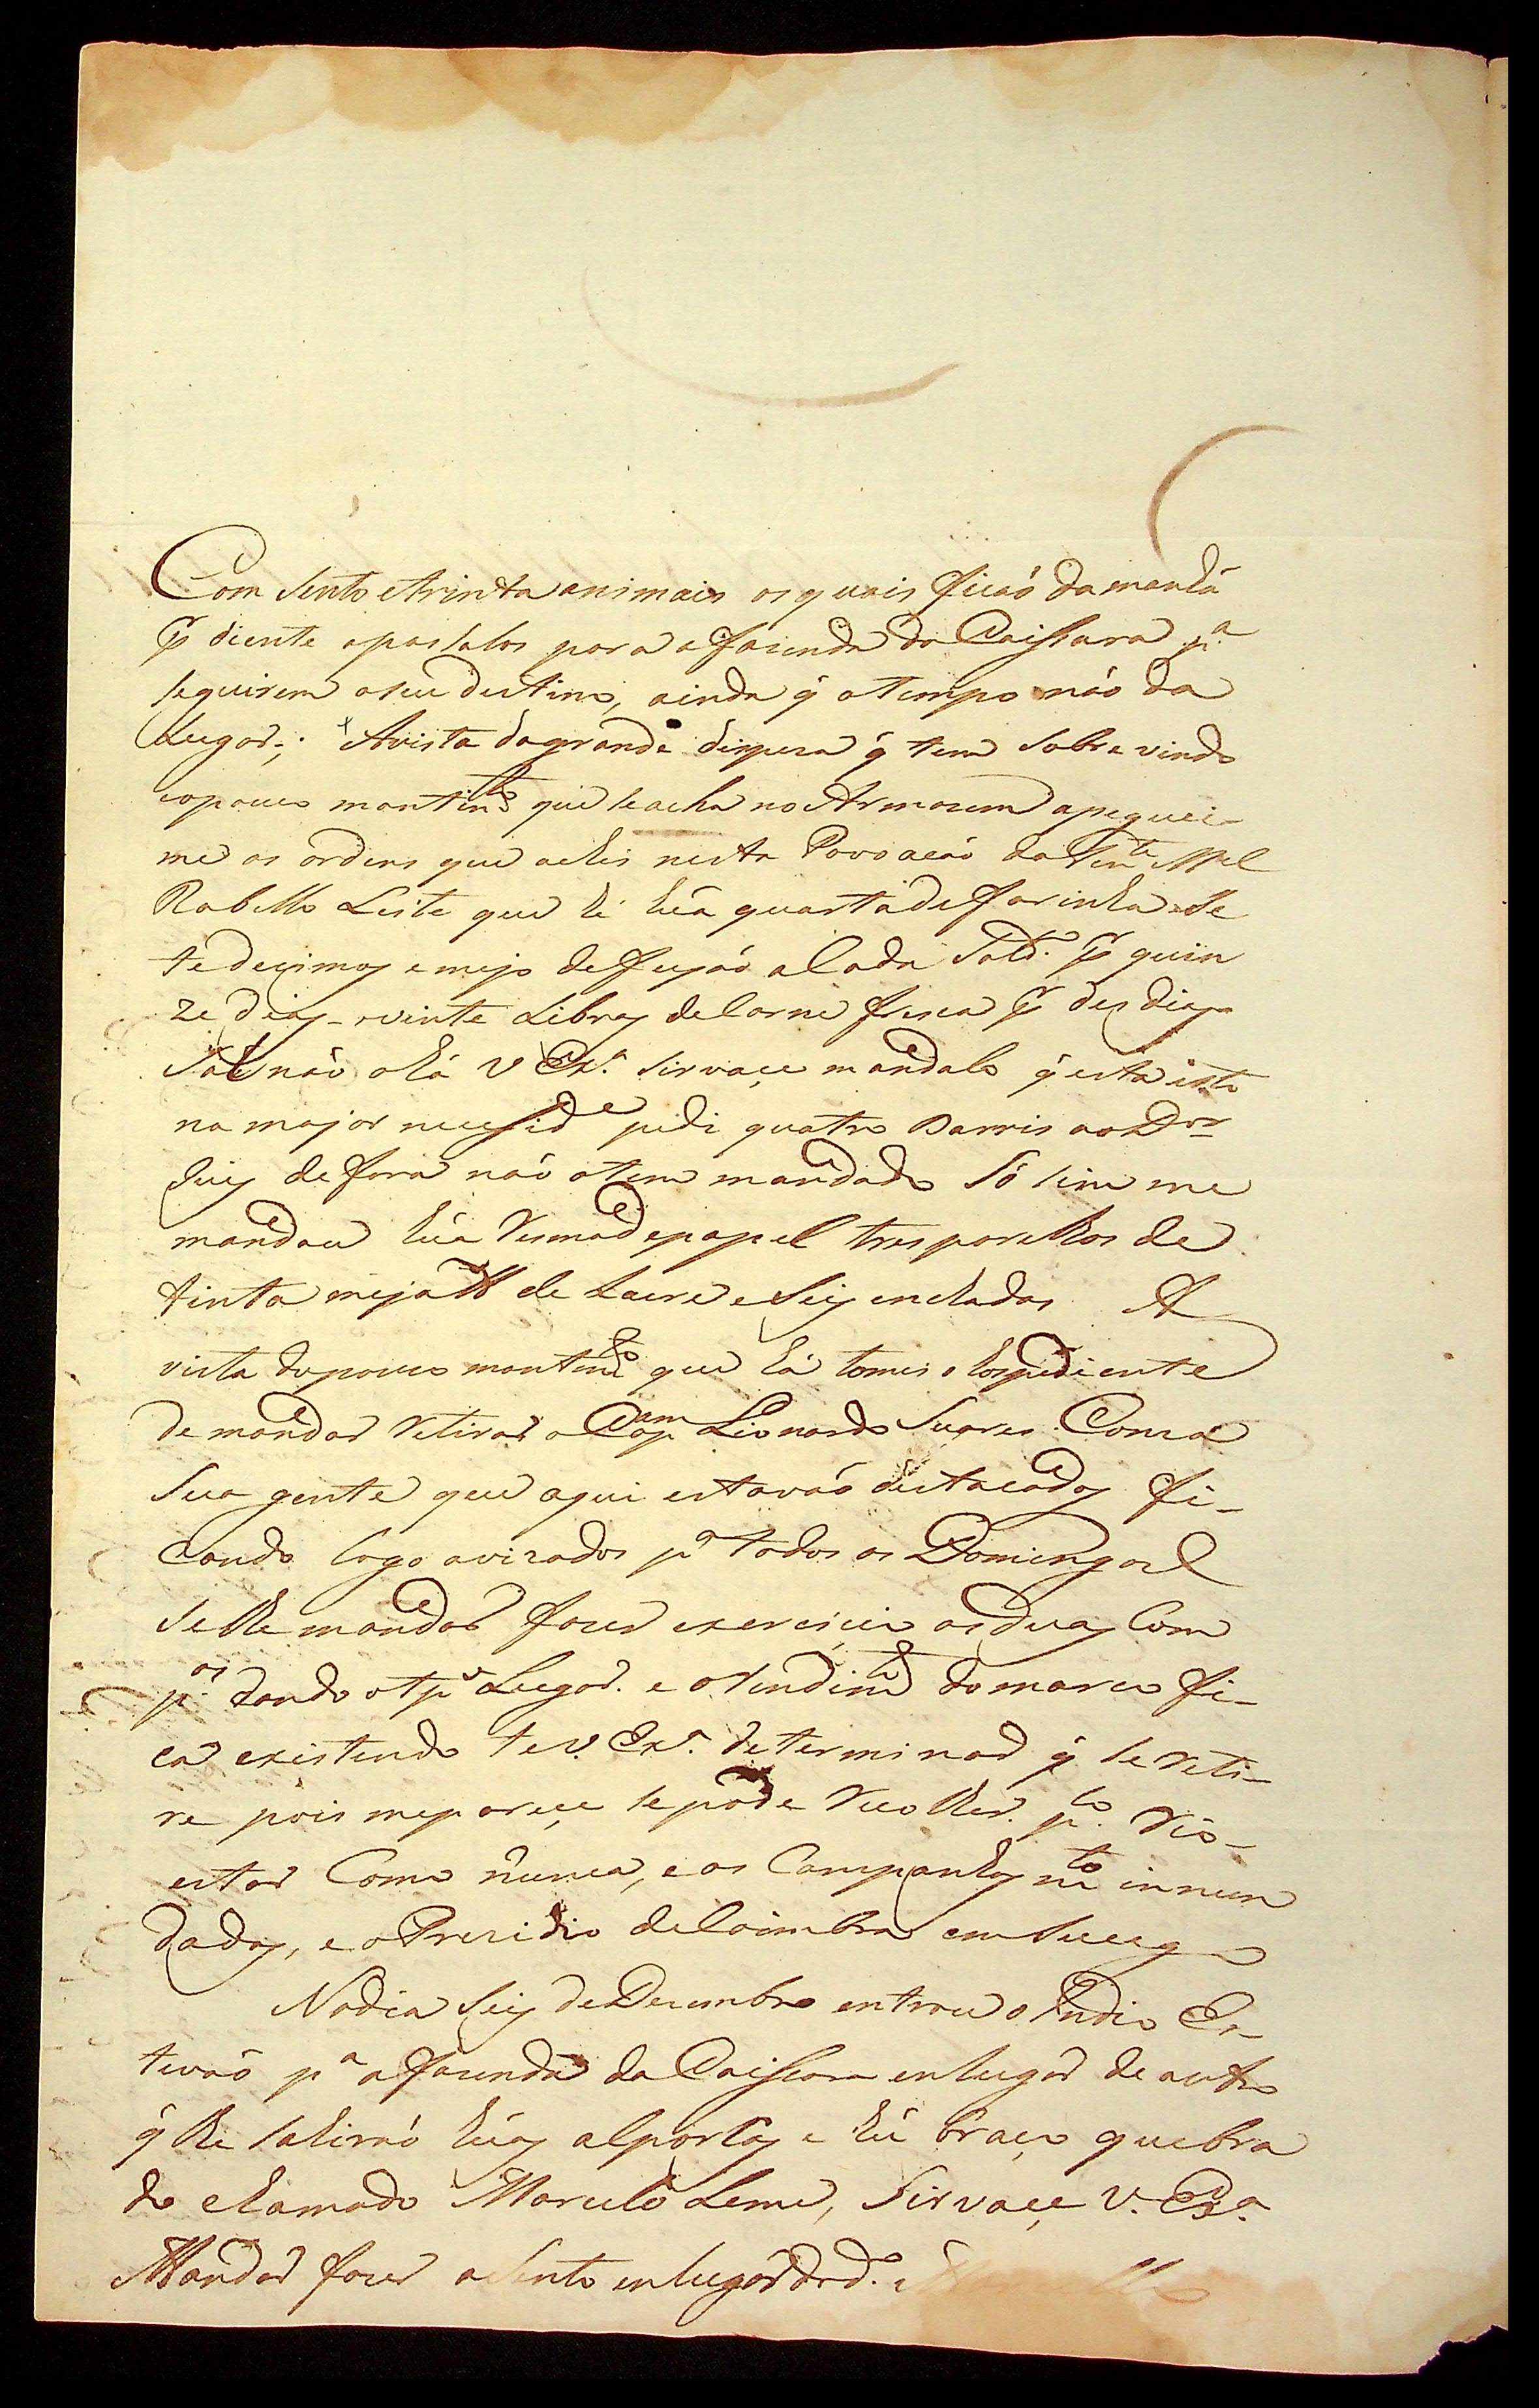 Com sento etrinta animais os quais ficaõ da menhã
p diente apostalos para afasenda da Caissara p.ª
seguirem aseu destino, ainda q̃ otempo não da
Lugar; Avista dagrande dispeza q̃ tem sobrevindo
eopouco mantimto que seacha no Armazem apeguei-
me as ordens que achei nesta Povoacaõ do Tente Mel
Rabello Leite que hé hũa quarta defarinha Se
tedecimos emejo defeyaõ aCada Sold.º p quin
ze dias vinte Libras deCarne fresca p des dias
Sal não ohá V Exª. sirvaçe mandalo q̃ esta isto
na major necessid.e pidi quatro Barris ao Dor
Juis defora naõ otem mandado Só sim me
mandou hũa Resmadepapel tres parelhos de
tinta meja de Lacre eseis enchadas A
vista dopouco mantimto que há tomei oespediente
demandar Retirar o Capam Lionardo Suares Coma
Sua gente que aqui estavaõ distacados fi-
cando logo avizados pª todos os Domingos
selhe mandar fazer exercicio asduas Com
pas dando otpo Lugar. e odistinmto do marco fi-
ca existindo the V. Exª. determinar q̃ se Reti-
re pois meparece sepode Recolher. plo Rio
estar Como nunca, e os Campanhas mto innun
dadas, e oPrezidio deCoimbra em
Nodia seis deDezembro entrou o Indio Es-
tevaõ pª afazenda da Caissara emlugar de outro
q̃ lhe sahiraõ hũas alporcas e hũ braço quebra
do chamado Marcelo Leme, Sirvaçe V. Exª.
Mandar fazer asento emlugar dod.º